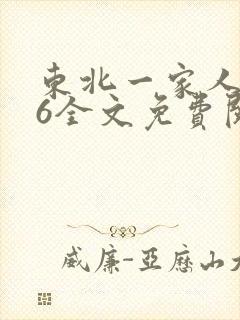 東北一家人
6全文免費閱
威廉-亞歷山大